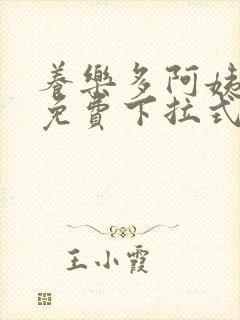 養樂多阿姨
免費下拉式
王小霞